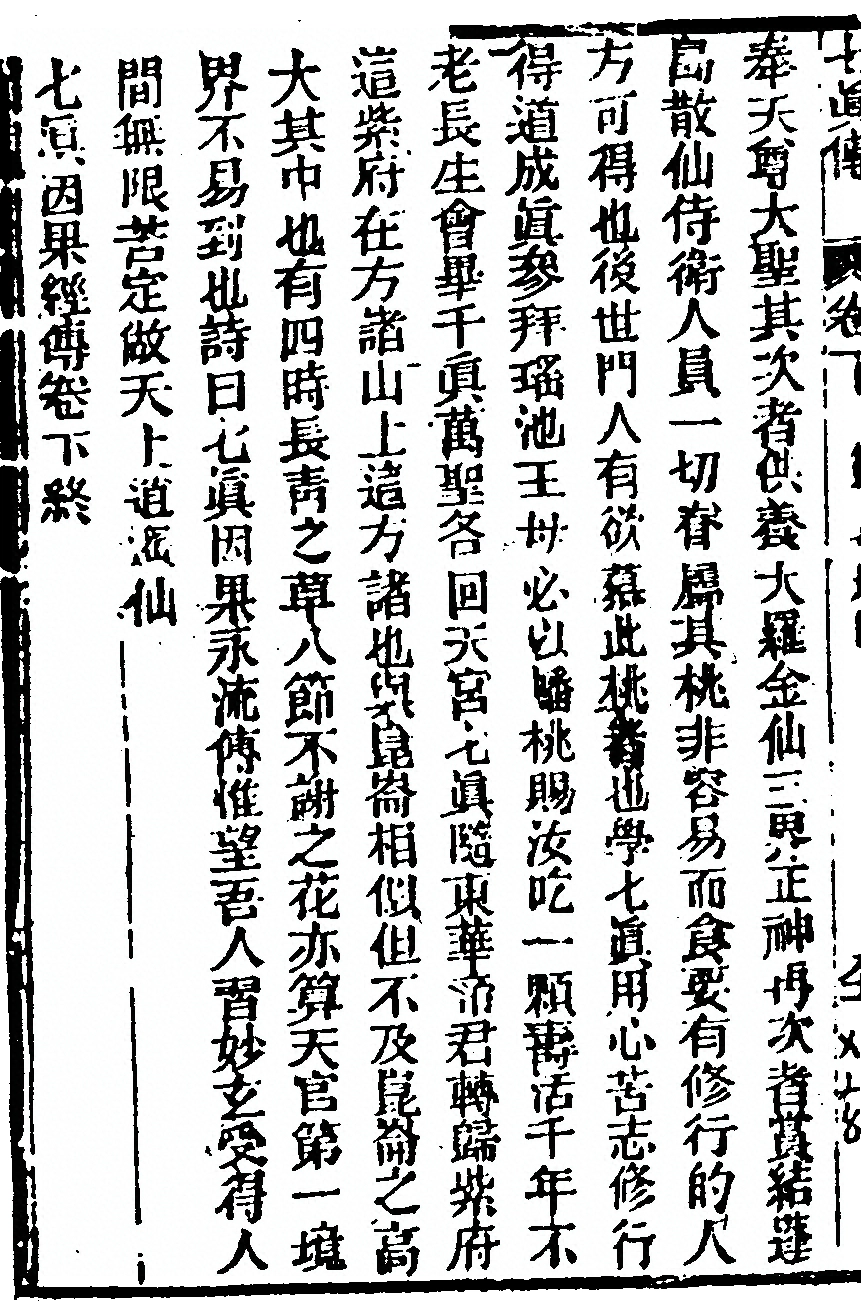 七眞傳 卷下
奉天尊大聖其次者供養大羅金仙三界正神再次者賞結蓬
島散仙侍衛人員一切眷屬其桃非容易而食要有修行的人
方可得也後世門人有欲慕此桃者也學七眞用心苦志修行
得道成眞參拜瑤池王母必以蟠桃賜汝吃一顆壽活千年不
老長生會畢千眞萬聖各回天宮七眞隨東華帝君轉歸紫府
這紫府在方諸山上這方諸也與崑崙相似但不及崑崙之高
大其中也有四時長靑之草八節不謝之花亦算天宮第一境
界不易到也詩曰七眞因果永流傳惟望吾人習妙玄受得人
間無限苦定做天上逍遙仙
七眞因果經傳卷下終